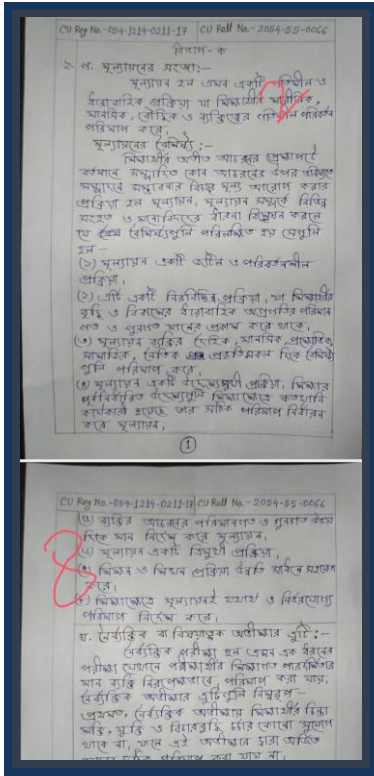 CU Reg No.-054-1214-0211-17 CU Roll No.- 2054-55-0066
বিভাগ-ক
২. ণ. মূল্যায়নের সংজ্ঞা:-
মূল্যায়ন হল এমন একটি গতিশীল ও
ধারাবাহিক প্রক্রিয়া যা শিক্ষার্থীর শারীরিক,
মানসিক, বৌদ্ধিক ও ব্যক্তিত্বের পরিবর্তন
পরিমাপ করে.
মূল্যায়নের বৈশিষ্ট্য:-
শিক্ষার্থীর অতীত আচরনের প্রেক্ষাপটে
বর্তমানে সম্পাদিত কোন আচরনের উপর ভবিষ্যতে
সম্ভাবনার বিষয়ে মূল্য আরোপ করার
প্রক্রিয়া হল মূল্যায়ন, মূল্যায়ন সম্পর্কে বিভিন্ন
সংজ্ঞা ও ধারনা বিশ্লেষন করলে
যে বৈশিষ্ট্যগুলি পরিলক্ষিত হয় সেগুলি
হল-
(১) মূল্যায়ন একটি জটিল ও পরিবর্তনশীল
প্রক্রিয়া,
(২) এটি একটি নিরবিচ্ছিন্ন প্রক্রিয়া, যা শিক্ষার্থীর
বুদ্ধি ও বিকাশের ধারাবাহিক অগ্রগতির পরিমান
গত ও গুনগত মানের প্রকাশ করে থাকে,
(৩) মূল্যায়ন ব্যক্তির দৈহিক, মানসিক, প্রাক্ষোভিক,
সামাজিক, নৈতিক প্রভৃতি সকল দিকে বৈশিষ্ট্য
গুলি পরিমাপ করে,
(৪) মূল্যায়ন একটি উদ্দেশ্যমুখী প্রক্রিয়া, শিক্ষার
পূর্বনির্ধারিত উদ্দেশ্যগুলি শিক্ষাক্ষেত্রে কতখানি
কার্যকারী হয়েছে তার সঠিক পরিমাপ নির্ধারন
করে মূল্যায়ন,
1
CU Reg No.-054-1214-0211-17 CU Roll No.- 2054-55-0066
(৫) ব্যক্তির আচরনের পরিমানগত ও গুনগত উভয়
দিকে মান নির্দেশ করে মূল্যায়ন,
মূল্যায়ন একটি ত্রিমুখী প্রক্রিয়া,
শিক্ষন ও শিখন প্রক্রিয়া উন্নতি সাধনে সহায়তা
করে,
8
শিক্ষাক্ষেত্রে মূল্যায়নই যথার্থ ও নির্ভরযোগ্য
পরিমাপ নির্দেশ করে,
ঘ. নৈর্ব্যক্তিক বা বিষয়াত্মক অভীক্ষার ত্রুটি:-
নৈর্ব্যক্তিক পরীক্ষা হল এমন এক ধরনের
পরীক্ষা যেখানে পরীক্ষার্থীর শিক্ষাগত পারদর্শিতার
মান ব্যক্তি নিরপেক্ষভাবে পরিমাপ করা যায়,
নৈর্ব্যক্তিক অভীক্ষার ত্রুটিগুলি নিম্নরূপ-
প্রথমত, নৈর্ব্যক্তিক অভীক্ষায় শিক্ষার্থীর চিন্তা
শক্তি, যুক্তি ও বিচারবুদ্ধি চর্চার কোনো সুযোগ
থাকে না, ফলে এই অভীক্ষার দ্বারা অর্জিত